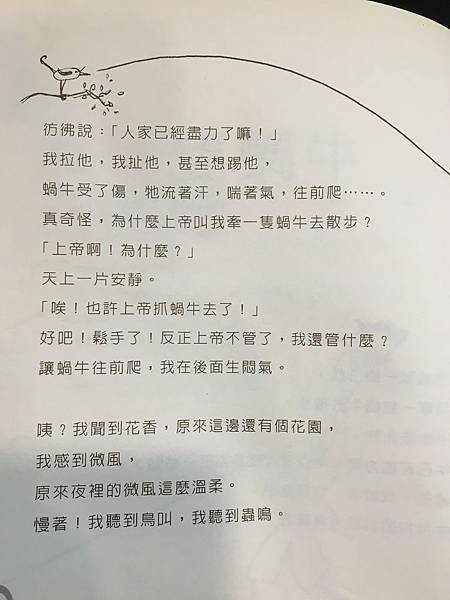 彷彿說：「人家已經盡力了嘛！」
我拉他，我扯他，甚至想踢他，
蝸牛受了傷，牠流著汗，喘著氣，往前爬……。
真奇怪，為什麼上帝叫我牽一隻蝸牛去散步？
「上帝啊！為什麼？」
天上一片安靜。
「唉！也許上帝抓蝸牛去了！」
好吧！鬆手了！反正上帝不管了，我還管什麼？
讓蝸牛往前爬，我在後面生悶氣。
咦？我聞到花香，原來這邊還有個花園，
我感到微風，
原來夜裡的微風這麼溫柔。
慢著！我聽到鳥叫，我聽到蟲鳴。